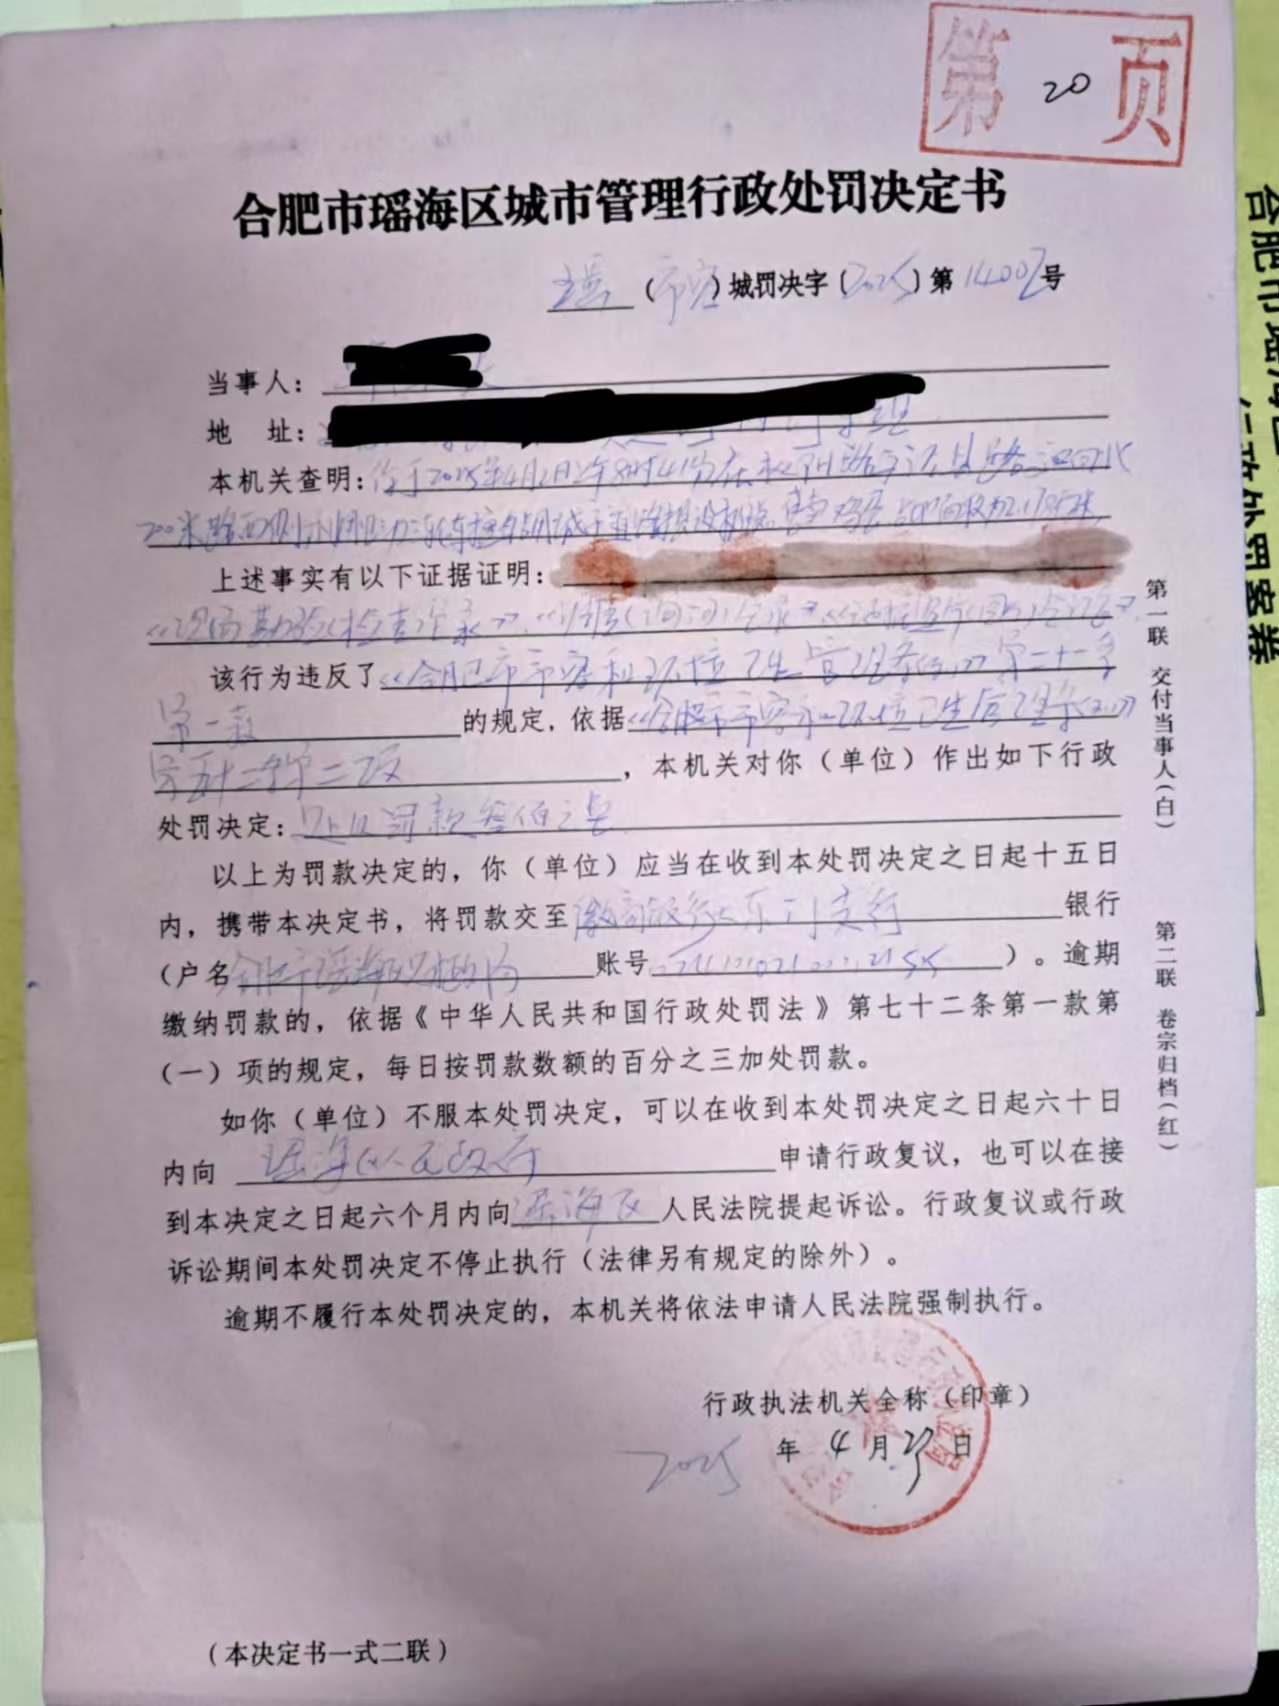 第 20 页
合肥市瑶海区城市管理行政处罚决定书
瑶（市容）城罚决字〔2025〕第 号
当事人：
地 址：
本机关查明：你于2025年4月2日 8时41分在
200米路西侧 占用城市道路摆设摊点售卖鸡蛋
上述事实有以下证据证明：
《现场勘验（检查）笔录》、《调查（询问）笔录》
该行为违反了《合肥市市容和环境卫生管理条例》第二十一条
第一款的规定，依据《合肥市市容和环境卫生管理条例》
第五十二条第二项，本机关对你（单位）作出如下行政
处罚决定： 罚款叁佰元
以上为罚款决定的，你（单位）应当在收到本处罚决定之日起十五日
内，携带本决定书，将罚款交至徽商银行大东门支行银行
（户名合肥市瑶海区财政局账号 ）。逾期
缴纳罚款的，依据《中华人民共和国行政处罚法》第七十二条第一款第
（一）项的规定，每日按罚款数额的百分之三加处罚款。
如你（单位）不服本处罚决定，可以在收到本处罚决定之日起六十日
内向 瑶海区人民政府 申请行政复议，也可以在接
到本决定之日起六个月内向瑶海区人民法院提起诉讼。行政复议或行政
诉讼期间本处罚决定不停止执行（法律另有规定的除外）。
逾期不履行本处罚决定的，本机关将依法申请人民法院强制执行。
行政执法机关全称（印章）
2025年4月29日
（本决定书一式二联）
第一联 交付当事人（白）
第二联 卷宗归档（红）